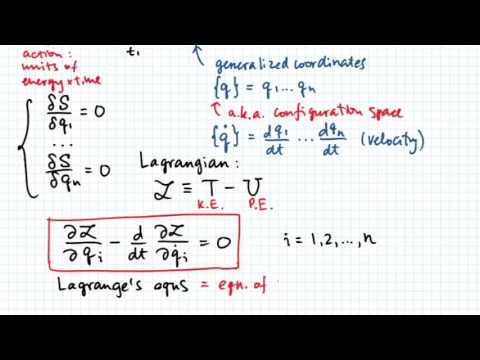 action:
units of
energy x time
t₁
generalized coordinates
{q} = q₁ ... qₙ
a.k.a. configuration space
{q̇} = dq₁/dt ... dqₙ/dt (velocity)
δS/δqᵢ = 0
...
δS/δqₙ = 0
Lagrangian:
ℒ ≡ T - U
K.E. P.E.
∂ℒ/∂qᵢ - d/dt ∂ℒ/∂q̇ᵢ = 0 i = 1, 2, ..., n
Lagrange's eqns = eqn. of